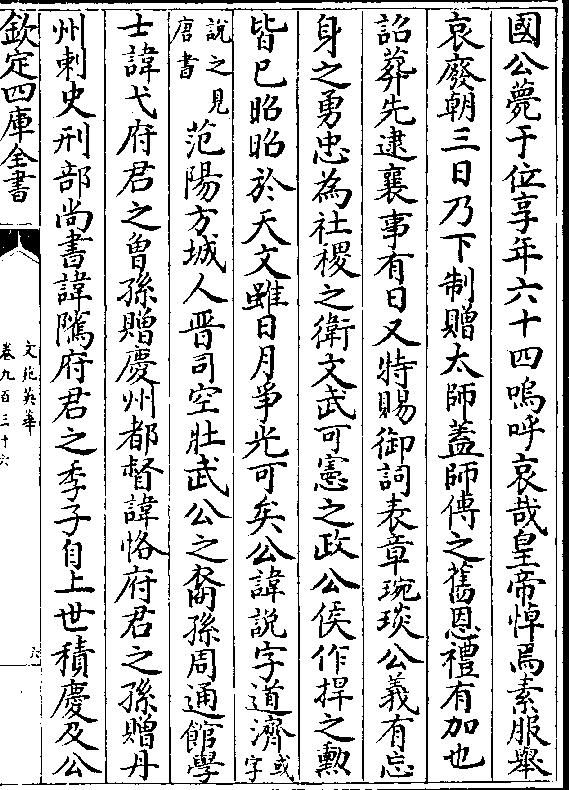 國公薨于位享年六十四嗚呼哀哉皇帝悼焉素服舉
哀廢朝三日乃下制贈太師蓋師傅之舊恩禮有加也
詔葬先逮襄事有日又特賜御詞表章琬琰公義有忘
身之勇忠為社稷之衛文武可憲之政公侯作捍之勲
皆已昭昭於天文雖日月爭光可矣公諱說字道濟或字
說之見唐書范陽方城人晋司空壯武公之裔孫周通館學
士諱弋府君之曾孫贈慶州都督諱恪府君之孫贈丹
州刺史刑部尚書諱隲府君之季子自上世積慶及公
欽定四庫全書
文苑英華
卷九百三十六